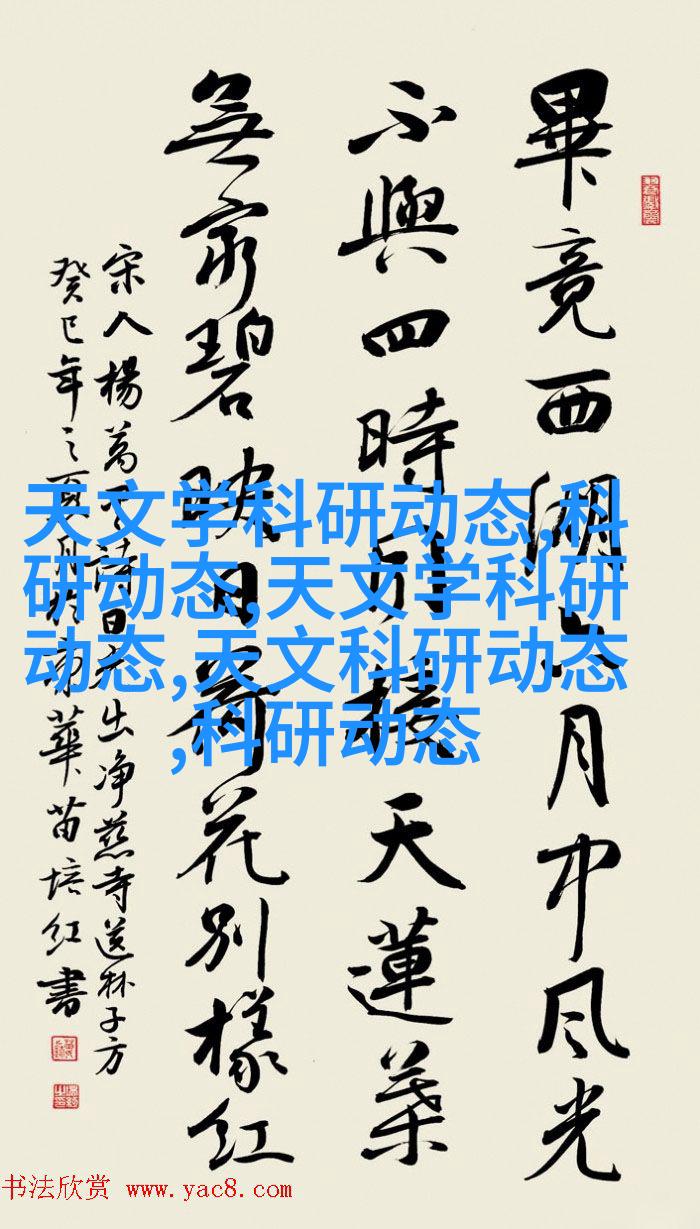 畢竟西湖六月中风光
不與四時同接天蓮葉
無窮碧映日荷花別樣红
宋人楊萬里詩晓出净慈寺送林子方
癸巳年之夏月於華苗培红書
天文学科研动态,科
研动态,天文学科研
动态,天文科研动态
,科研动态
书法欣赏 www.yac8.com